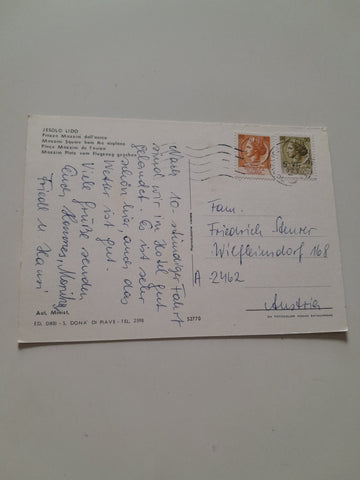 JESOLO LIDO
Piazza Mazzini dall'aereo
Mazzini Square from the airplane
Place Mazzini de l'avion
Mazzini Platz vom Flugzeug gesehen
Nach 10-stündiger Fahrt
sind wir im Hotel gut
gelandet. Es ist sehr
schön hier, auch das
Wetter ist gut.
Viele Grüße senden
Euch, Hannes, Monika,
Friedl u. Hansi
Fam.
Friedrich
Wilfleinsdorf 168
A 2462
Austria
Aut. Minist.
ED. DREI - S. DONA' DI PIAVE - TEL. 2398
53770